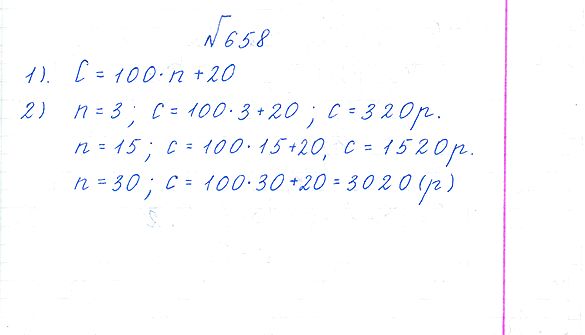 №658
1). C = 100·n+20
2) n=3; c=100·3+20; c=320р.
n=15; c=100·15+20, c=1520р.
n=30; c=100·30+20=3020(р)